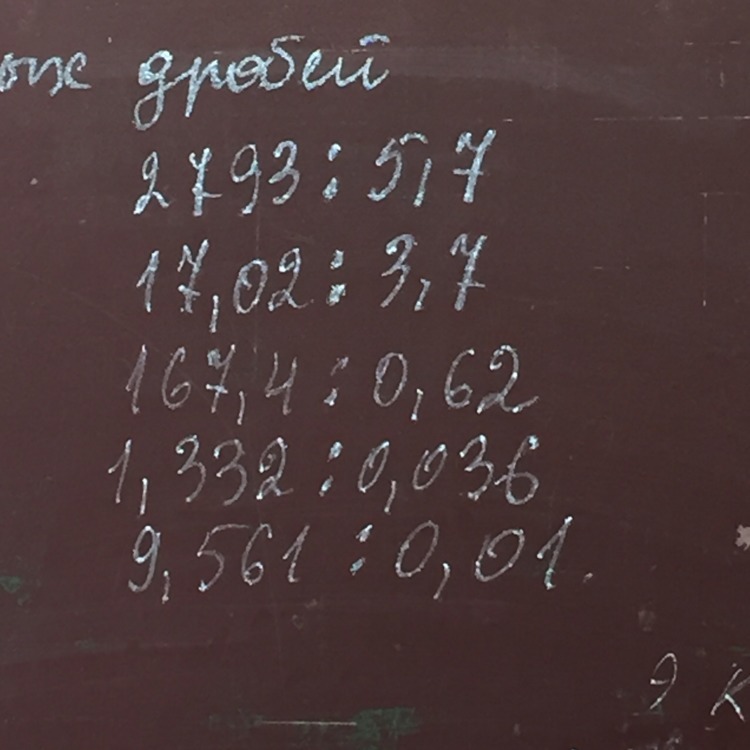 дробей
2793 : 5,7
17,02 : 3,7
167,4 : 0,62
1,332 : 0,036
9,561 : 0,01.